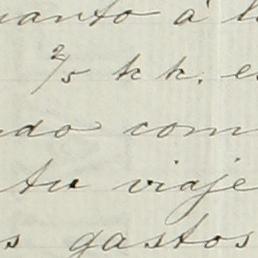 uanto á l
2/5 kk. e
ndo com
tu viaje
s gastos